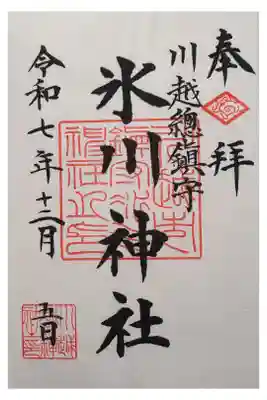 奉拝
川越總鎮守
氷川神社
令和七年十二月
五日